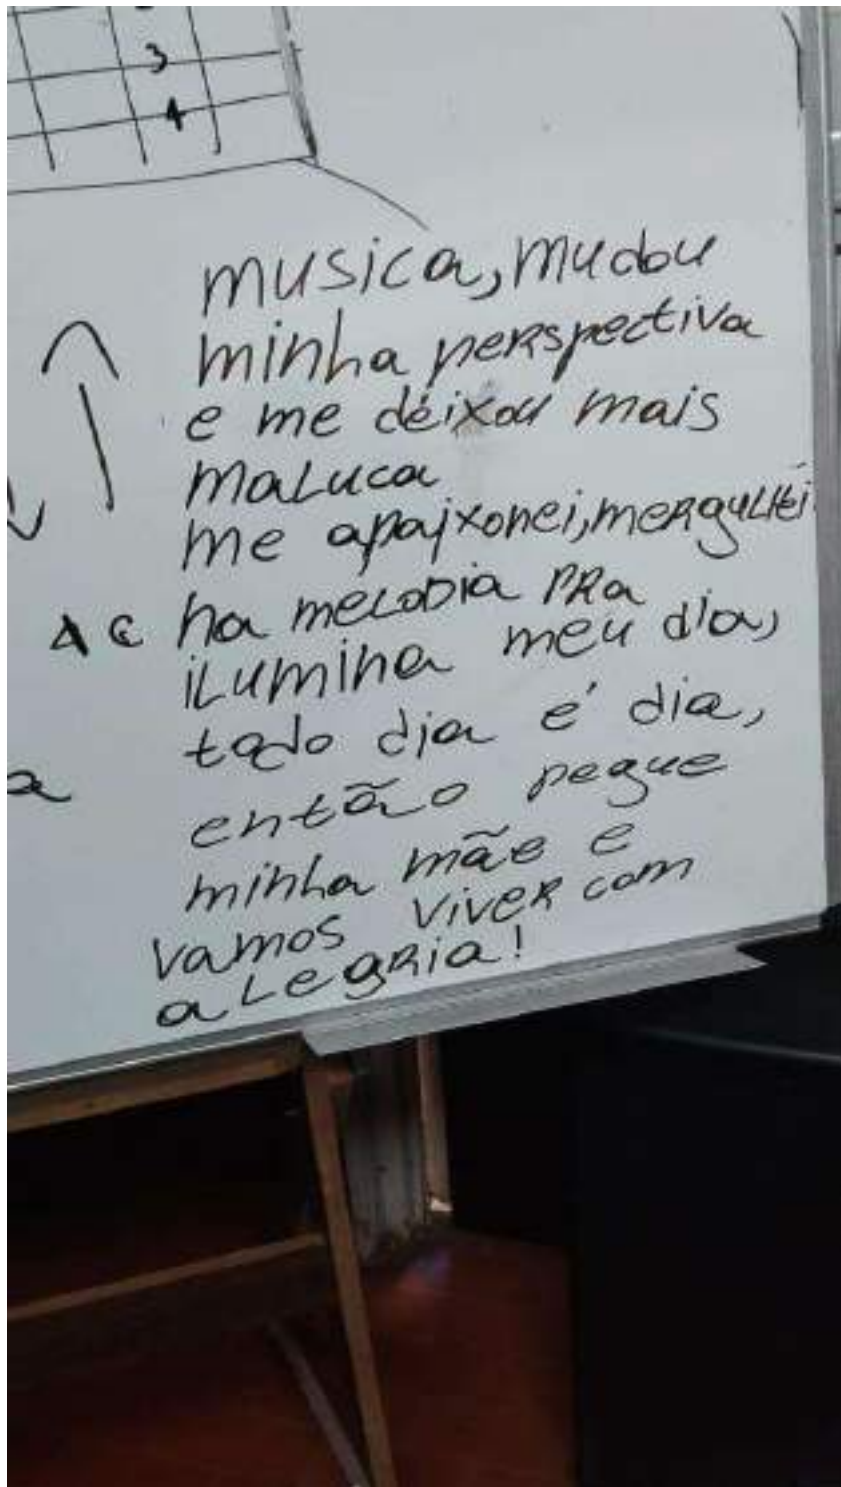 3
4
musica, mudou
minha perspectiva
e me deixou mais
maluca
me apaixonei, mergulhei
na melodia PRa
ilumina meu dia,
todo dia é dia,
então pegue
minha mãe e
vamos viver com
alegria!